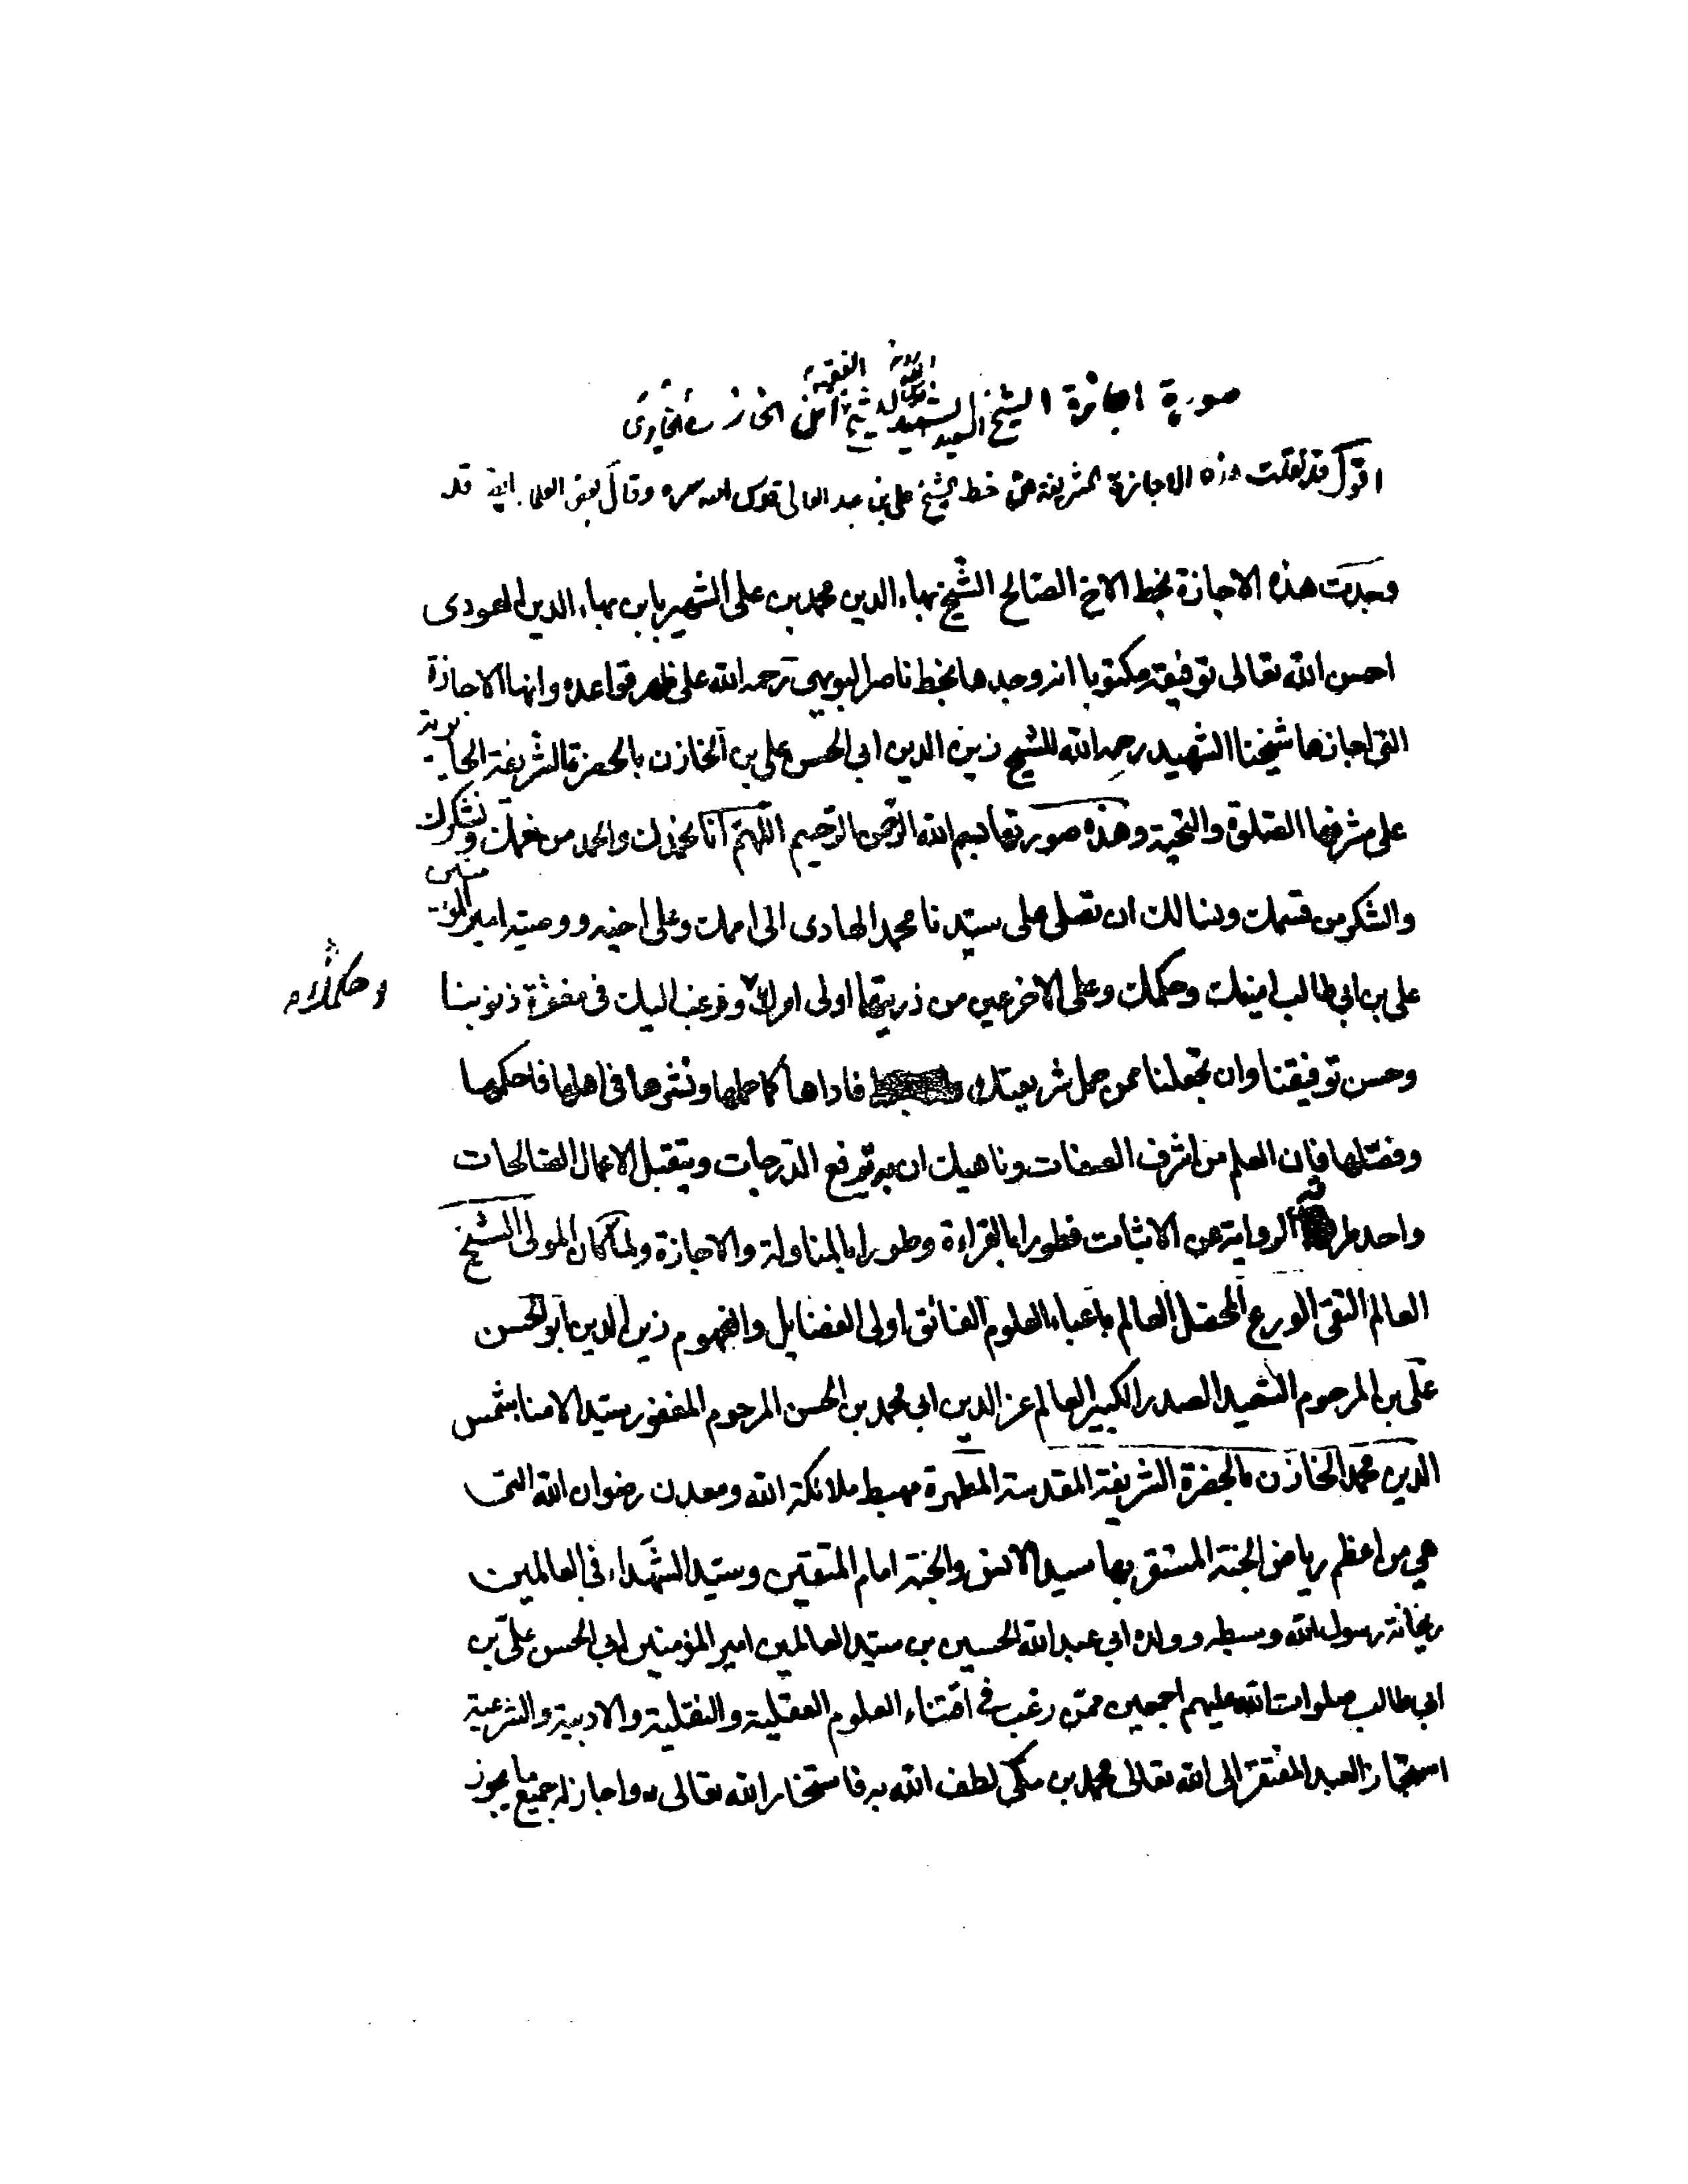 صورة اجازة الشيخ السعيد الشهيد للشيخ الفقيه ابن الخازن الحايرى
اقول قد نقلت هذه الاجازة الشريفة من خط الشيخ على بن عبد العالى قدس الله سره وقال بعض العلماء ايضا قد
وجدت هذه الاجازة بخط الاخ الصالح الشيخ بهاء الدين محمد بن على الشهير بابن بهاء الدين العودى
احسن الله تعالى توفيقه مكتوبا انه وجدها بخط ناصر البويهى رحمه الله على ظهر قواعده وانها الاجازة
التى اجازها شيخنا الشهيد رحمه الله للشيخ زين الدين ابى الحسن على بن الخازن بالحضرة الشريفة الحايرية
على مشرفها الصلوة والتحية وهذه صورتها بسم الله الرحمن الرحيم اللهم انا نحمدك والحمد من نعمك ونشكرك
والشكر من قسمك ونسالك ان تصلى على سيدنا محمد الهادى الى اممك وعلى اخيه ووصيه امير المؤمنين
على بن ابى طالب امينك وحكمك وعلى الاخرعين من ذريتهما اولى امرك ونرغب اليك فى مغفرة ذنوبنا
وحسن توفيقنا وان تجعلنا ممن حمل شريعتك فاداها كما حملها ونشرها فى اهلها فاحكمها
وفصلها فان العلم من اشرف الصفات وناهيك ان به ترفع الدرجات ويتقبل الاعمال الصالحات
واحد طرقه الرواية عن الاثبات فطورا بالقراءة وطورا بالمناولة والاجازة ولما كان المولى الشيخ
العالم التقى الورع المحصل العالم باعباء العلوم الفائق اولى الفضايل والفهوم زين الدين ابو الحسن
على بن المرحوم السعيد الصدر الكبير العالم عز الدين ابى محمد بن الحسن المرحوم المغفور سيد الامنا شمس
الدين محمد الخازن بالحضرة الشريفة المقدسة المطهرة مهبط ملائكة الله ومعدن رضوان الله التى
هى من اعظم رياض الجنة المستقر بها سيد الانس والجنة امام المتقين وسيد الشهداء فى العالمين
ريحانة رسول الله وسبطه وولده ابى عبد الله الحسين بن سيد العالمين امير المؤمنين ابى الحسن على بن
ابى طالب صلوات الله عليهم اجمعين ممن رغب فى اقتناء العلوم العقلية والنقلية والادبية والشرعية
استجاز العبد المفتقر الى الله تعالى محمد بن مكى لطف الله به فاستخار الله تعالى واجاز له جميع ما يجوز